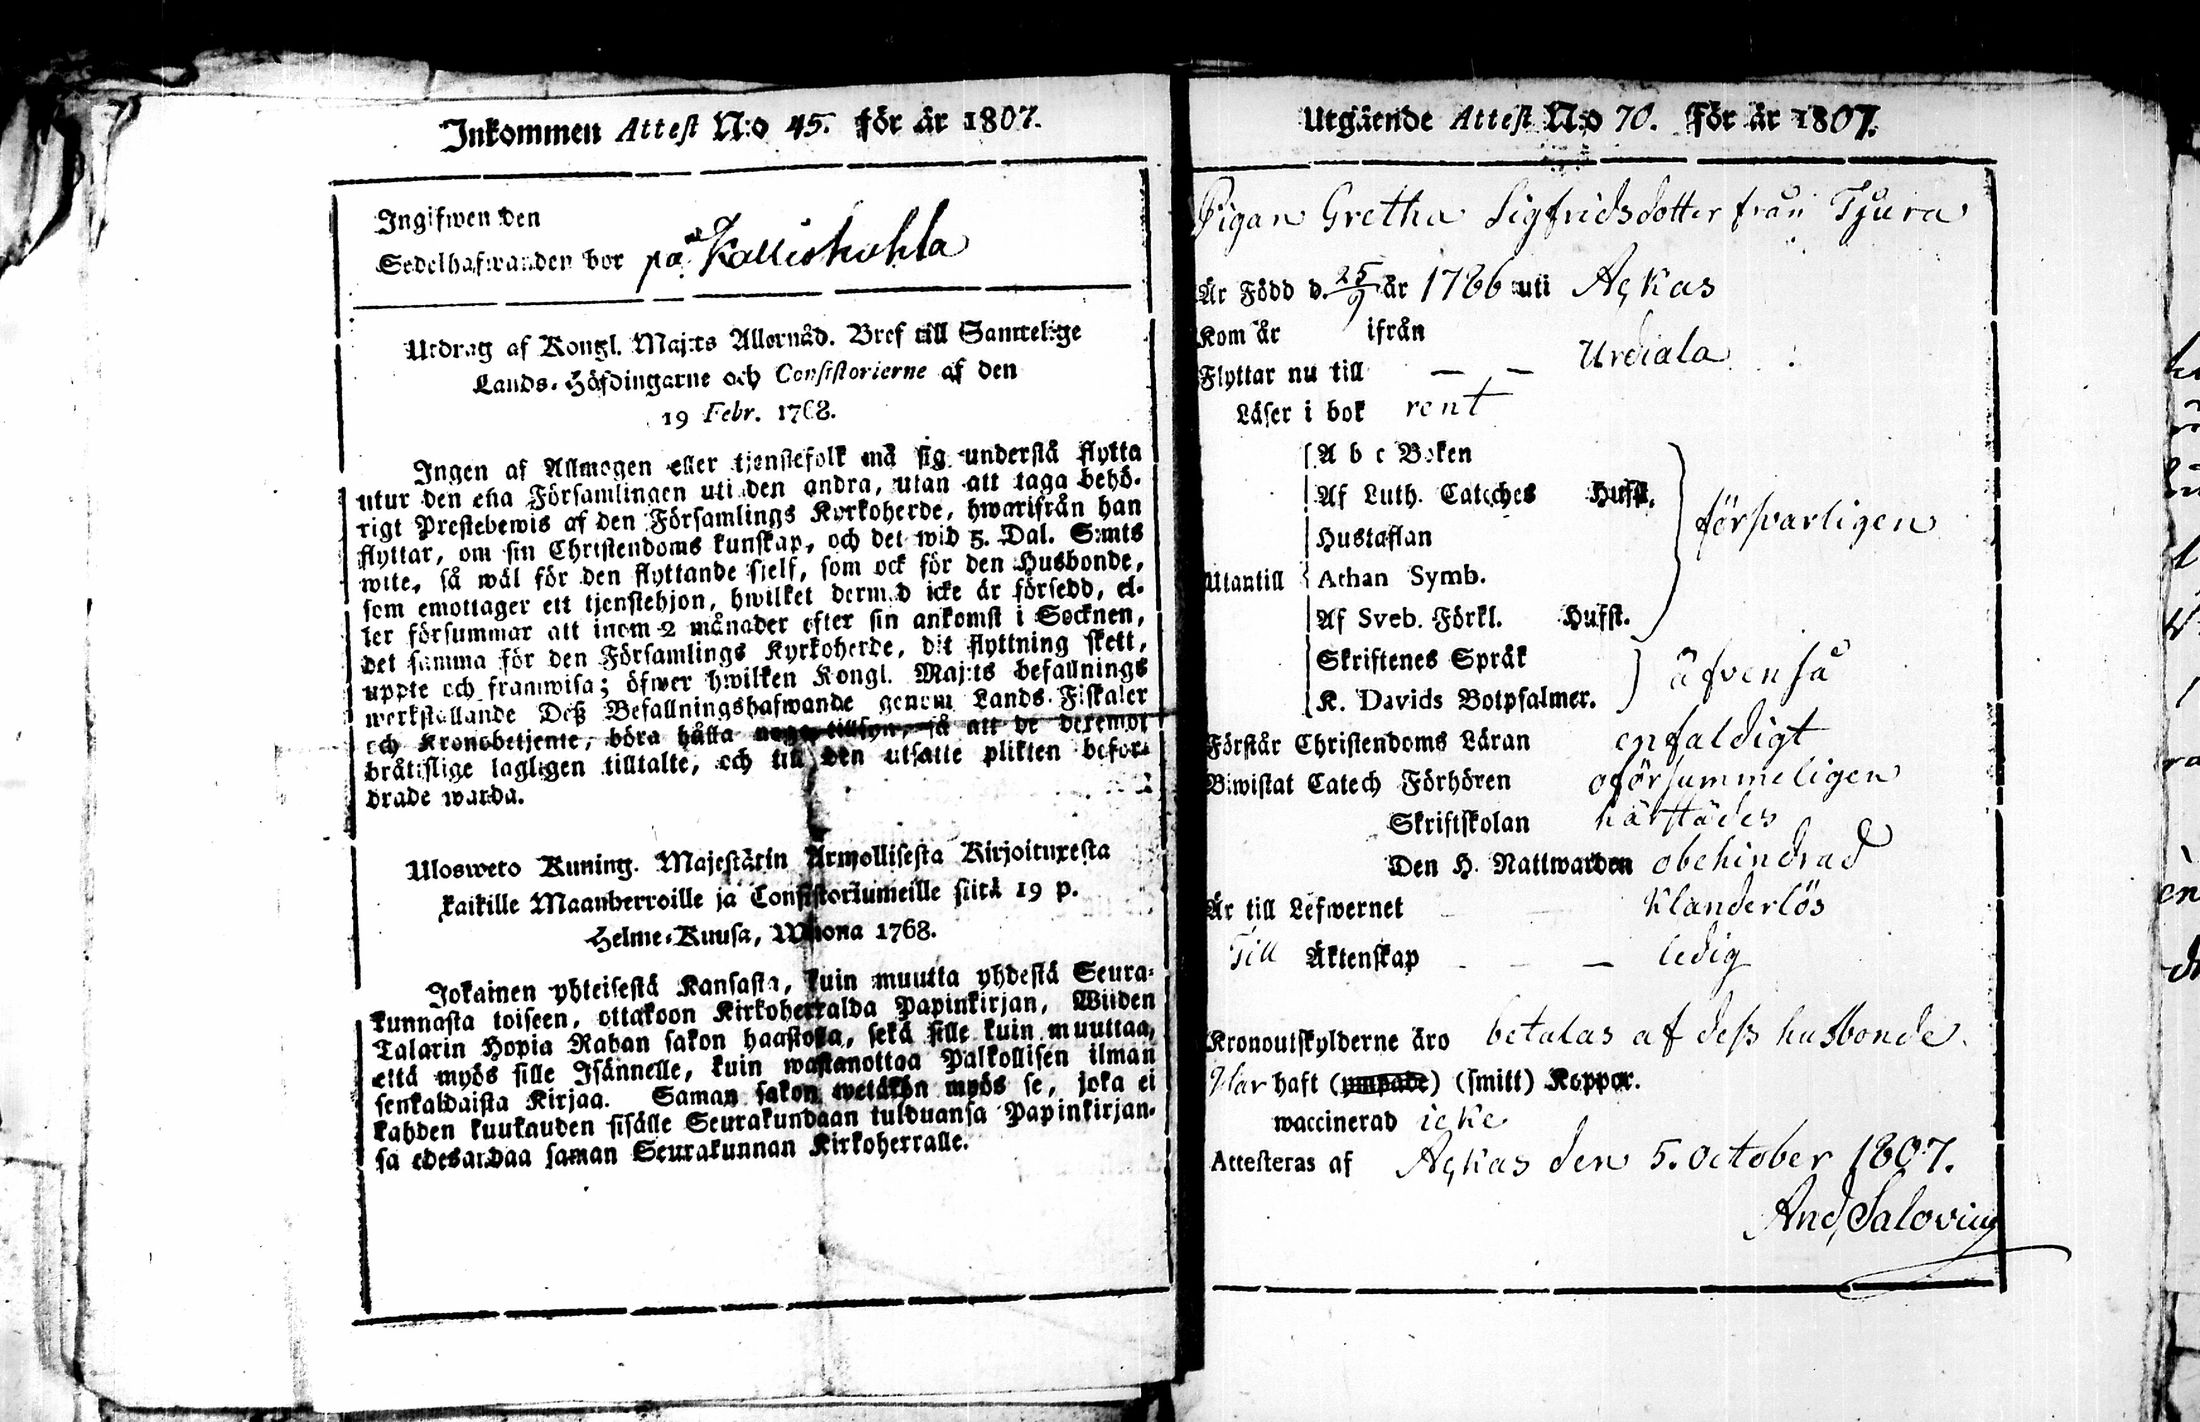 Inkommen Attest N:o 45. för år 1807.
Ingifwen den
Sedelhafwanden bor på Kalliskahla
Utdrag af Kongl. Maj:ts Allernåd. Bref till Samtelige
Lands-Höfdingarne och Consistorierne af den
19 Febr. 1768.
Ingen af Allmogen eller tjenstefolk må sig understå flytta
utur den ena Församlingen uti den andra, utan att taga behö-
rigt Prestebewis af den Församlings Kyrkoherde, hwarifrån han
flyttar, om sin Christendoms kunskap, och det wid 5. Dal. S:mts
wite, så wäl för den flyttande sielf, som ock för den Husbonde,
som emottager ett tjenstehjon, hwilket dermed icke är försedd, el-
ler försummar att inom 2 månader efter sin ankomst i Socknen,
det samma för den Församlings Kyrkoherde, dit flyttning skett,
uppte och framwisa; öfwer hwilken Kongl. Maj:ts befallnings
werkställande Deß Befallningshafwande genom Lands-Fiskaler
och Kronobetjente, böra hålla noga tillsyn, så att de deremot
bråtislige lagligen tilltalte, och till den utsatte plikten befor-
drade warda.
Ulosweto Kuning. Majestätin Armollisesta Kirjoituxesta
kaikille Maanherroille ja Consistoriumeille siitä 19 p.
Helme-Kuusa, Wuona 1768.
Jokainen yhteisestä Kansasta, kuin muutta yhdestä Seura-
kunnasta toiseen, ottakoon Kirkoherralda Papinkirjan, Wiiden
Talarin Hopia Rahan sakon haastolla, sekä sille kuin muuttaa,
että myös sille Isännelle, kuin wastanottaa Palkollisen ilman
senkaldaista Kirjaa. Saman sakon wetäkön myös se, joka ei
kahden kuukauden sisälle Seurakundaan tulduansa Papinkirjan-
sa edesandaa saman Seurakunnan Kirkoherralle.
Utgående Attest N:o 70. För år 1807.
Pigan Gretha Sigfridsdotter från Tjura
Är Född d. 25/9 år 1786 uti Ackas
Kom år ifrån
Flyttar nu till — — Urdiala
Läser i bok rent
Utantill
A b c Boken
Af Luth. Cateches Husst.
Hustaflan
Athan Symb.
Af Sveb. Förkl. Husst.
försvarligen
Skriftenes Språk
K. Davids Botpsalmer.
äfvenså
Förstår Christendoms Läran enfaldigt
Biwistat Catech Förhören oförsummeligen
Skriftskolan härstädes
Den H. Nattwarden obehindrad
Är till Lefwernet klanderlös
Till Äktenskap — — — ledig
Kronoutskylderne äro betalas af deß husbonde.
Har haft (ympade) (smitt) Koppor.
waccinerad icke
Attesteras af Ackas den 5. October 1807.
And. Salovius